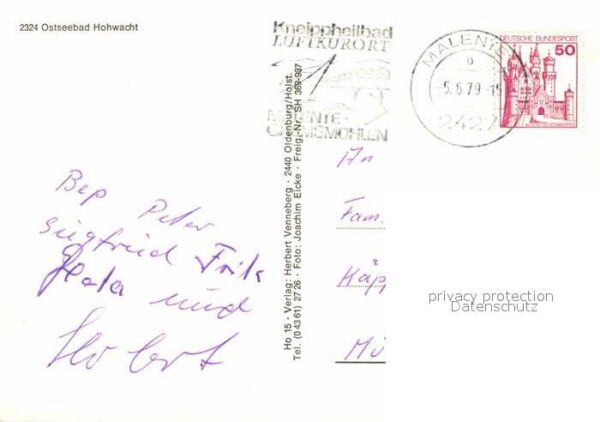 2324 Ostseebad Hohwacht
Kneippheilbad
LUFTKURORT
MALENTE-
GREMSMÜHLEN
MALENTE
-5.6.79-15
2427
DEUTSCHE BUNDESPOST
50
Ho 15 - Verlag: Herbert Venneberg - 2440 Oldenburg/Holst.
Tel. (04361) 2726 - Foto: Joachim Eicke - Freig. Nr. SH 369-937
Bep Peter
Siegfried
und
An
Fam.
Käpp
Mü
privacy protection
Datenschutz